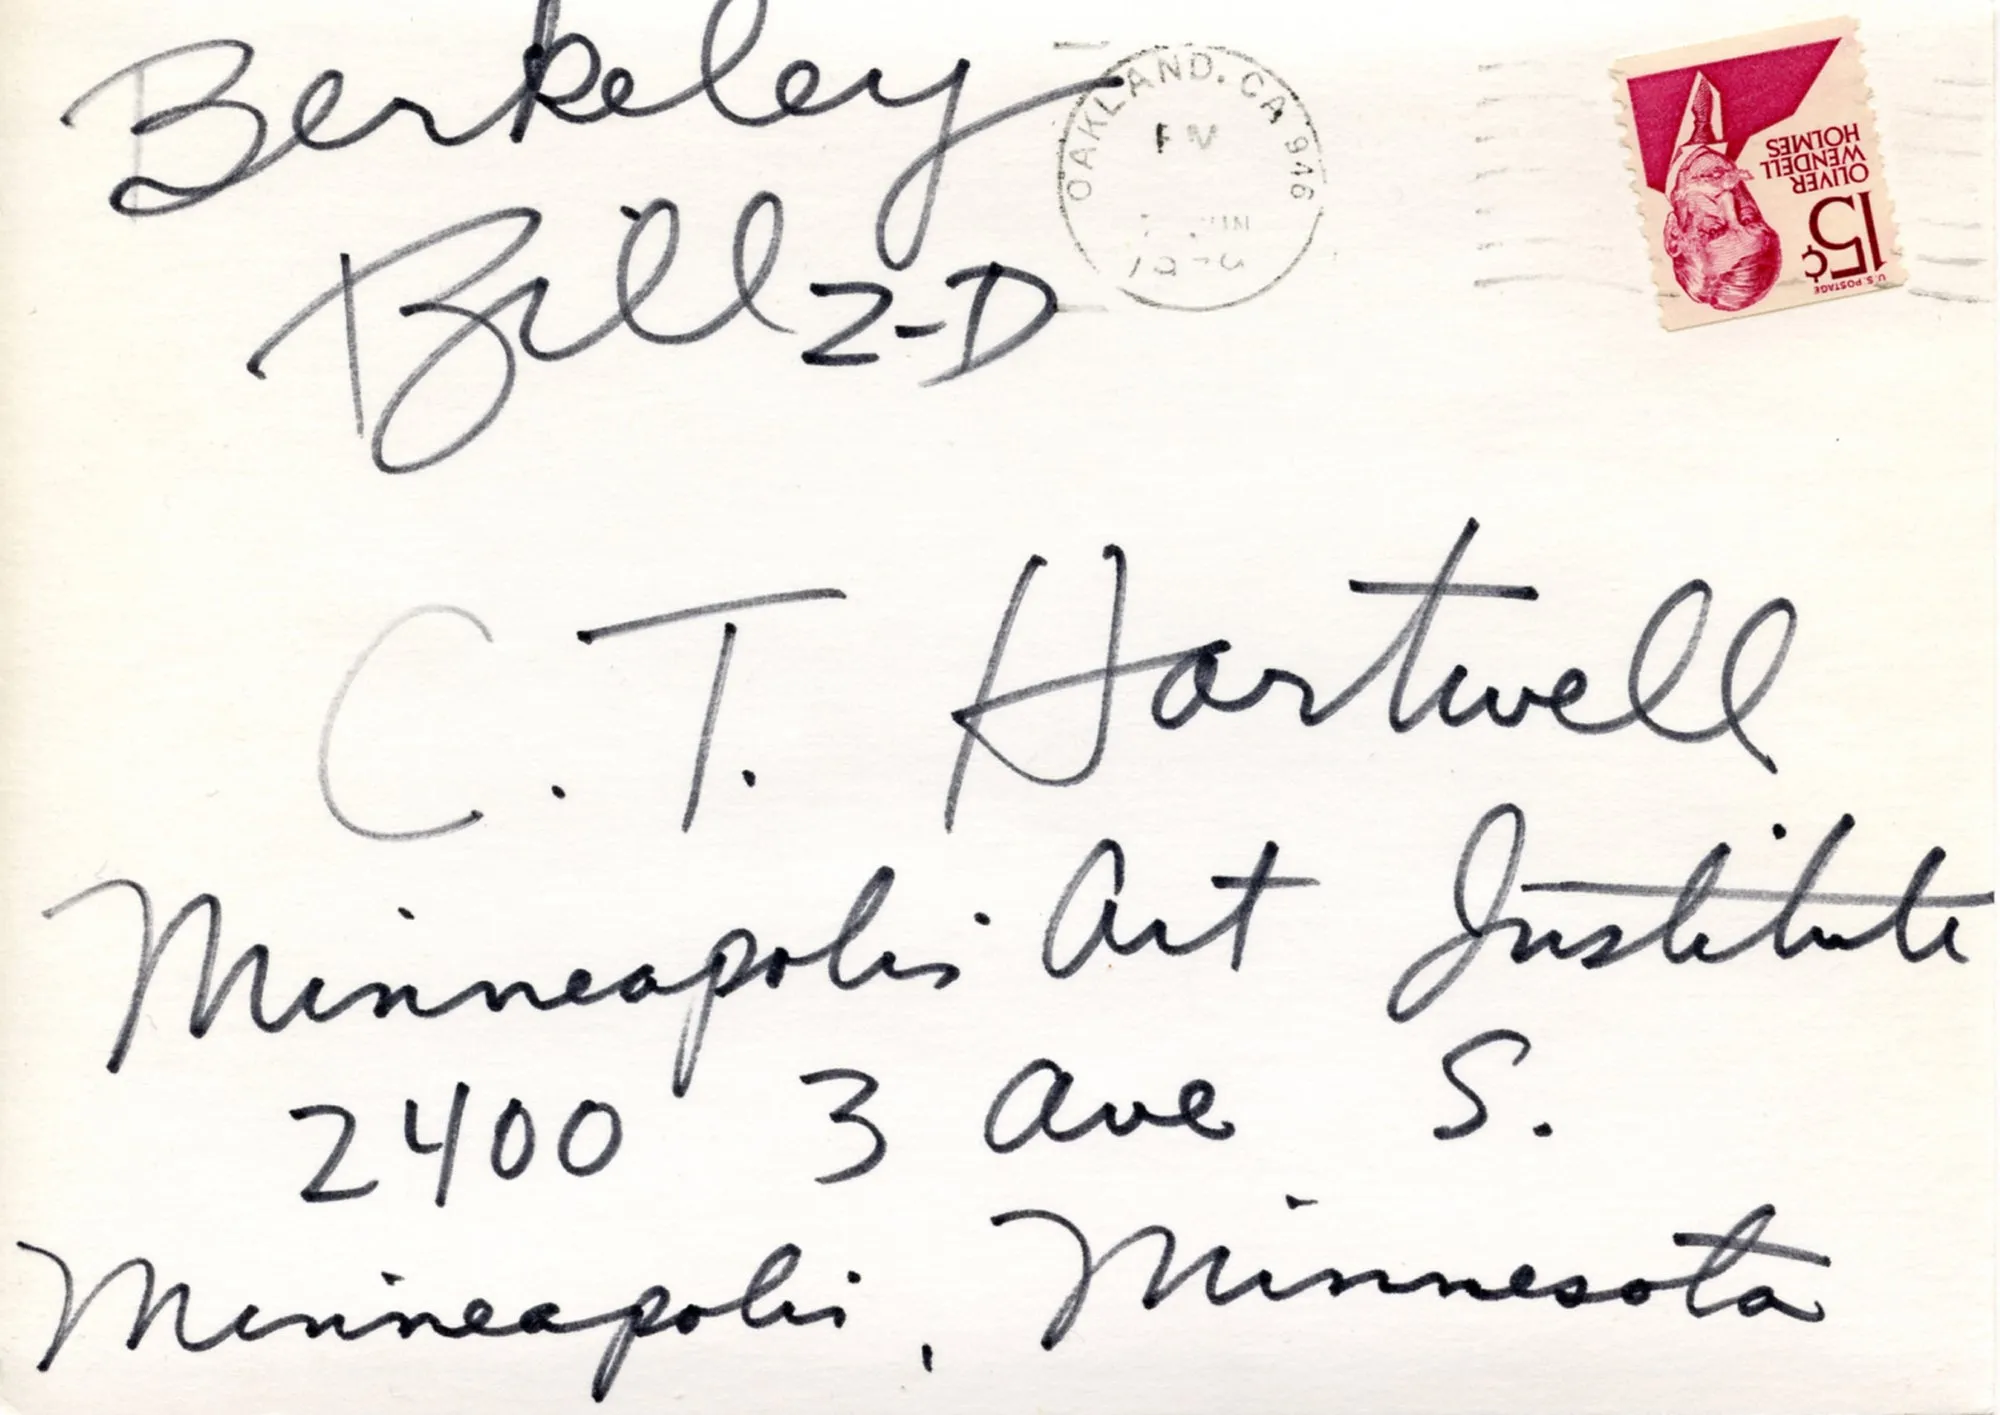 Berkeley
Bill Z-D
OAKLAND, CA 946
PM
JUN
U.S. POSTAGE
15¢
OLIVER
WENDELL
HOLMES
C. T. Hartwell
Minneapolis Art Institute
2400 3 Ave S.
Minneapolis, Minnesota